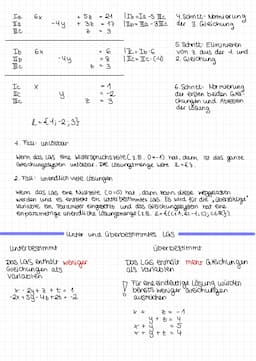 Ib 6x + 5z = 21 | Ib = Ia - 5 IIIc
IIa -4y + 3z = 17 | IIb = IIa - 3 IIIc
IIIc z = 3
4. Schritt: Normierung der 3. Gleichung
Ib 6x = 6 | Ib : 6
IIb -4y = 8 | IIc : (-4)
IIIc z = 3
5. Schritt: Eliminieren von z aus der 1. und 2. Gleichung
Ic x = 1
IIc y = -2
IIIc z = 3
6. Schritt: Normierung der ersten beiden Gleichungen und Ablesen der Lösung
L = {(1, -2, 3)}
1. Fall: unlösbar
Wenn das LGS eine Widerspruchszeile (z.B. 0=1) hat, dann ist das ganze
Gleichungssystem unlösbar. Die Lösungsmenge wäre L = { }.
2. Fall: unendlich viele Lösungen
Wenn das LGS eine Nullzeile (0=0) hat, dann kann diese weggelassen
werden und es entsteht ein unterbestimmtes LGS. Es wird für die "überzählige"
Variable ein Parameter eingesetzt und das Gleichungssystem hat eine
einparametrige unendliche Lösungsmenge
Unter und Überbestimmtes LGS
Unterbestimmt
Das LGS enthält weniger
Gleichungen als
Variablen
x - 2y + z + t = 1
-2x + 5y - 4z + 2t = -2
Überbestimmt
Das LGS enthält mehr Gleichungen
als Variablen
Für eine eindeutige Lösung würden
bereits weniger Gleichungen
ausreichen
x + z = -1
y + z = 4
x + y = 5
x + y + z = 4